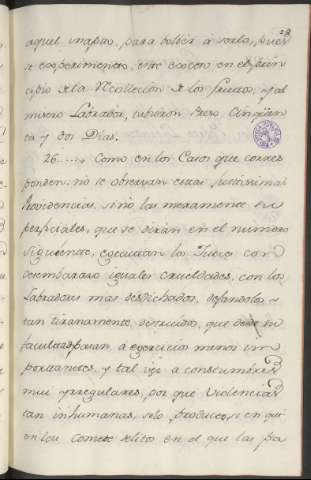 28
aquel mapao, para bolber à serlo, pues
se experimentò, este exceso en el prin
cipio de la Recollecciòn de los frutos, y al
misero Labrador, tubieron Preso Cinquen
ta y dos Dias.
26..... Como en los Casos que corres
ponden, no se observan estas justissimas
Providencias, sino las meramente su
perficiales, que se diràn en el numero
siguiente, executan los Jueces con
desembarazo iguales crueldades, con los
Labradores mas desdichados, dejandolos
tan tiranamente destruidos, que de
facultades pasan a exercicios menos im
portantes, y tal vez a costumbres
mui yrregulares, por que violencias
tan inhumanas, solo produces, en que
en los comete delitos en el que las pa